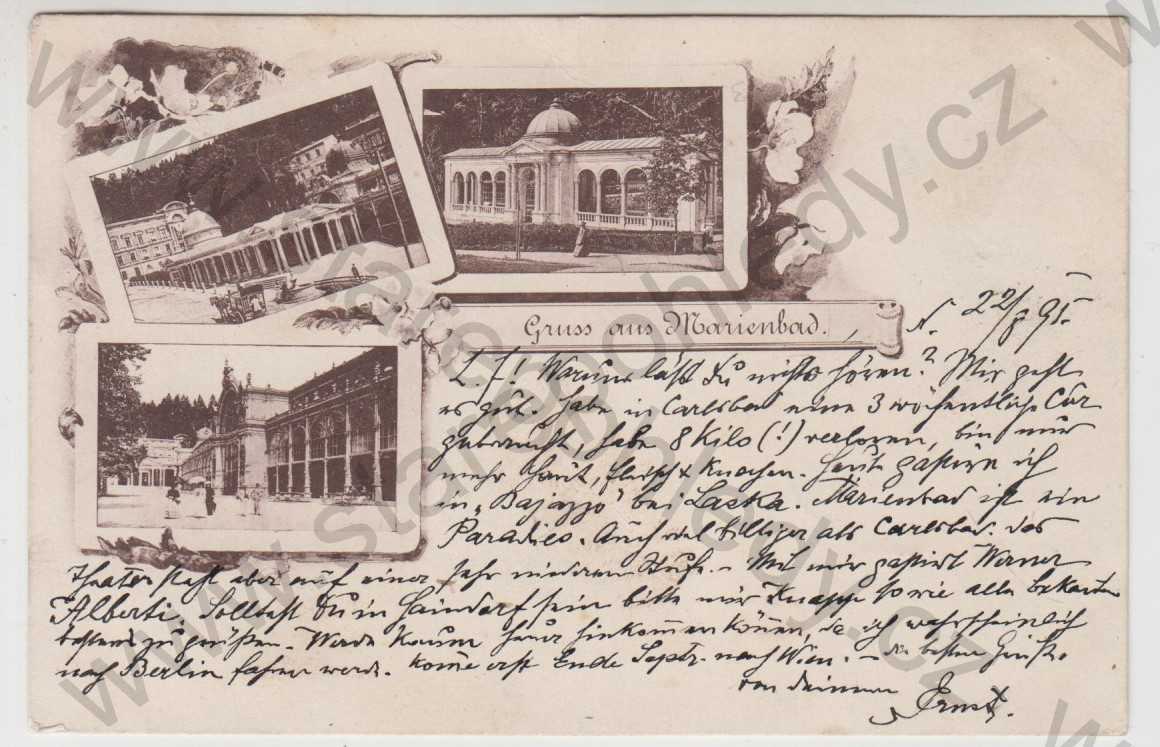 Gruss aus Marienbad.
N. 22/7 95.
L. F.! Warum läßt Du nichts hören? Mir geht
es gut. Habe in Carlsbad eine 3 wöchentliche Cur
gebraucht, habe 8 Kilo (!) verloren, bin nur
mehr Haut, Fleisch & Knochen. Heute gastire ich
in „Bajazzo" bei Laska. Marienbad ist ein
Paradies. Auch viel billiger als Carlsbad. Das
Theater steht aber auf einer sehr niederen Stufe. – Mit mir gastirt Werner
Alberti. Solltest Du in Haindorf sein bitte mir Knapp sowie alle Bekannten
bestens zu grüßen. Werde kaum heuer hinkommen können, da ich wahrscheinlich
nach Berlin fahren werde. Kome erst Ende Septr. nach Wien. – Die besten Grüße
von Deinem Ernst.
www.starepohlady.cz
www.starepohlady.cz